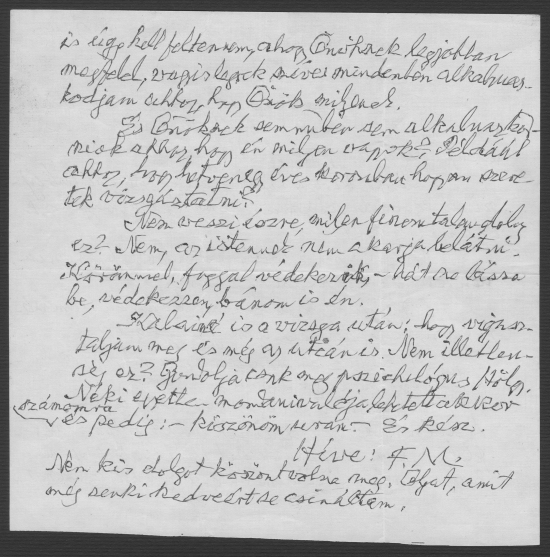 is úgy kell feltennem, ahogy Önöknek legjobban
megfelel, vagyis legyek szíves mindenben alkalmaz-
kodjam ahhoz, hogy Önök milyenek.
És Önöknek semmiben sem alkalmazkod-
niok ahhoz, hogy én milyen vagyok? Például
ahhoz, hogy hetvenegy éves koromban hogyan szeret-
tek vizsgáztatni?
Nem veszi észre, milyen finomtalan dolog
ez? Nem, az istennek nem akarja belátni.
Körömmel, foggal védekezik, – hát ne lássa
be, védekezzen, bánom is én.
Kalainé is a vizsga után: hogy vigasz-
taljam meg és még az utcán is. Nem illetlen-
ség ez? Gondolja csak meg pszichológus Hölgy.
Néki egyetlen mondanivalója lehetett akkor
számomra
és pedig: – köszönöm uram. – És kész.
Híve: F. M.
Nem kis dolgot köszönt volna meg. Olyat, amit
még senki kedvéért se csináltam.